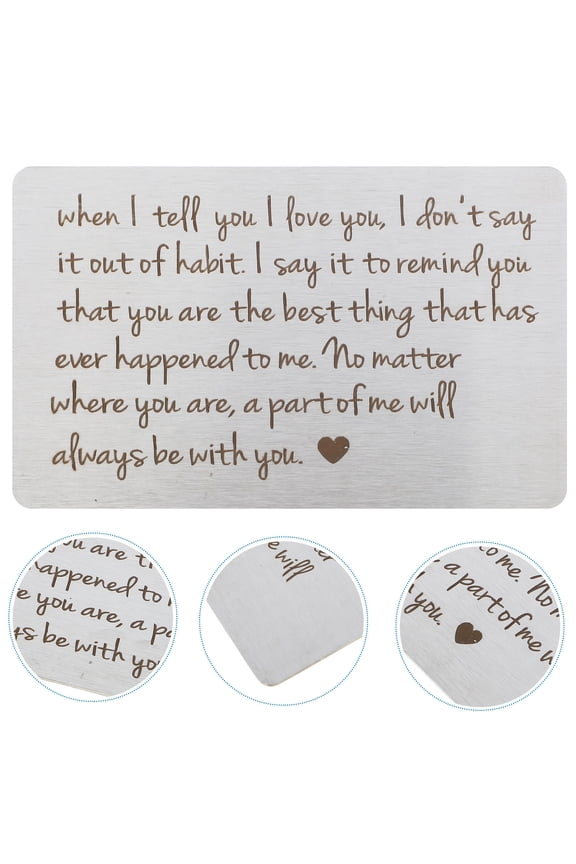 when I tell you I love you, I don't say
it out of habit. I say it to remind you
that you are the best thing that has
ever happened to me. No matter
where you are, a part of me will
always be with you.
you are th
happened to
e you are, a pa
ys be with yo
er
e will
to me. No m
a part of me w
you.